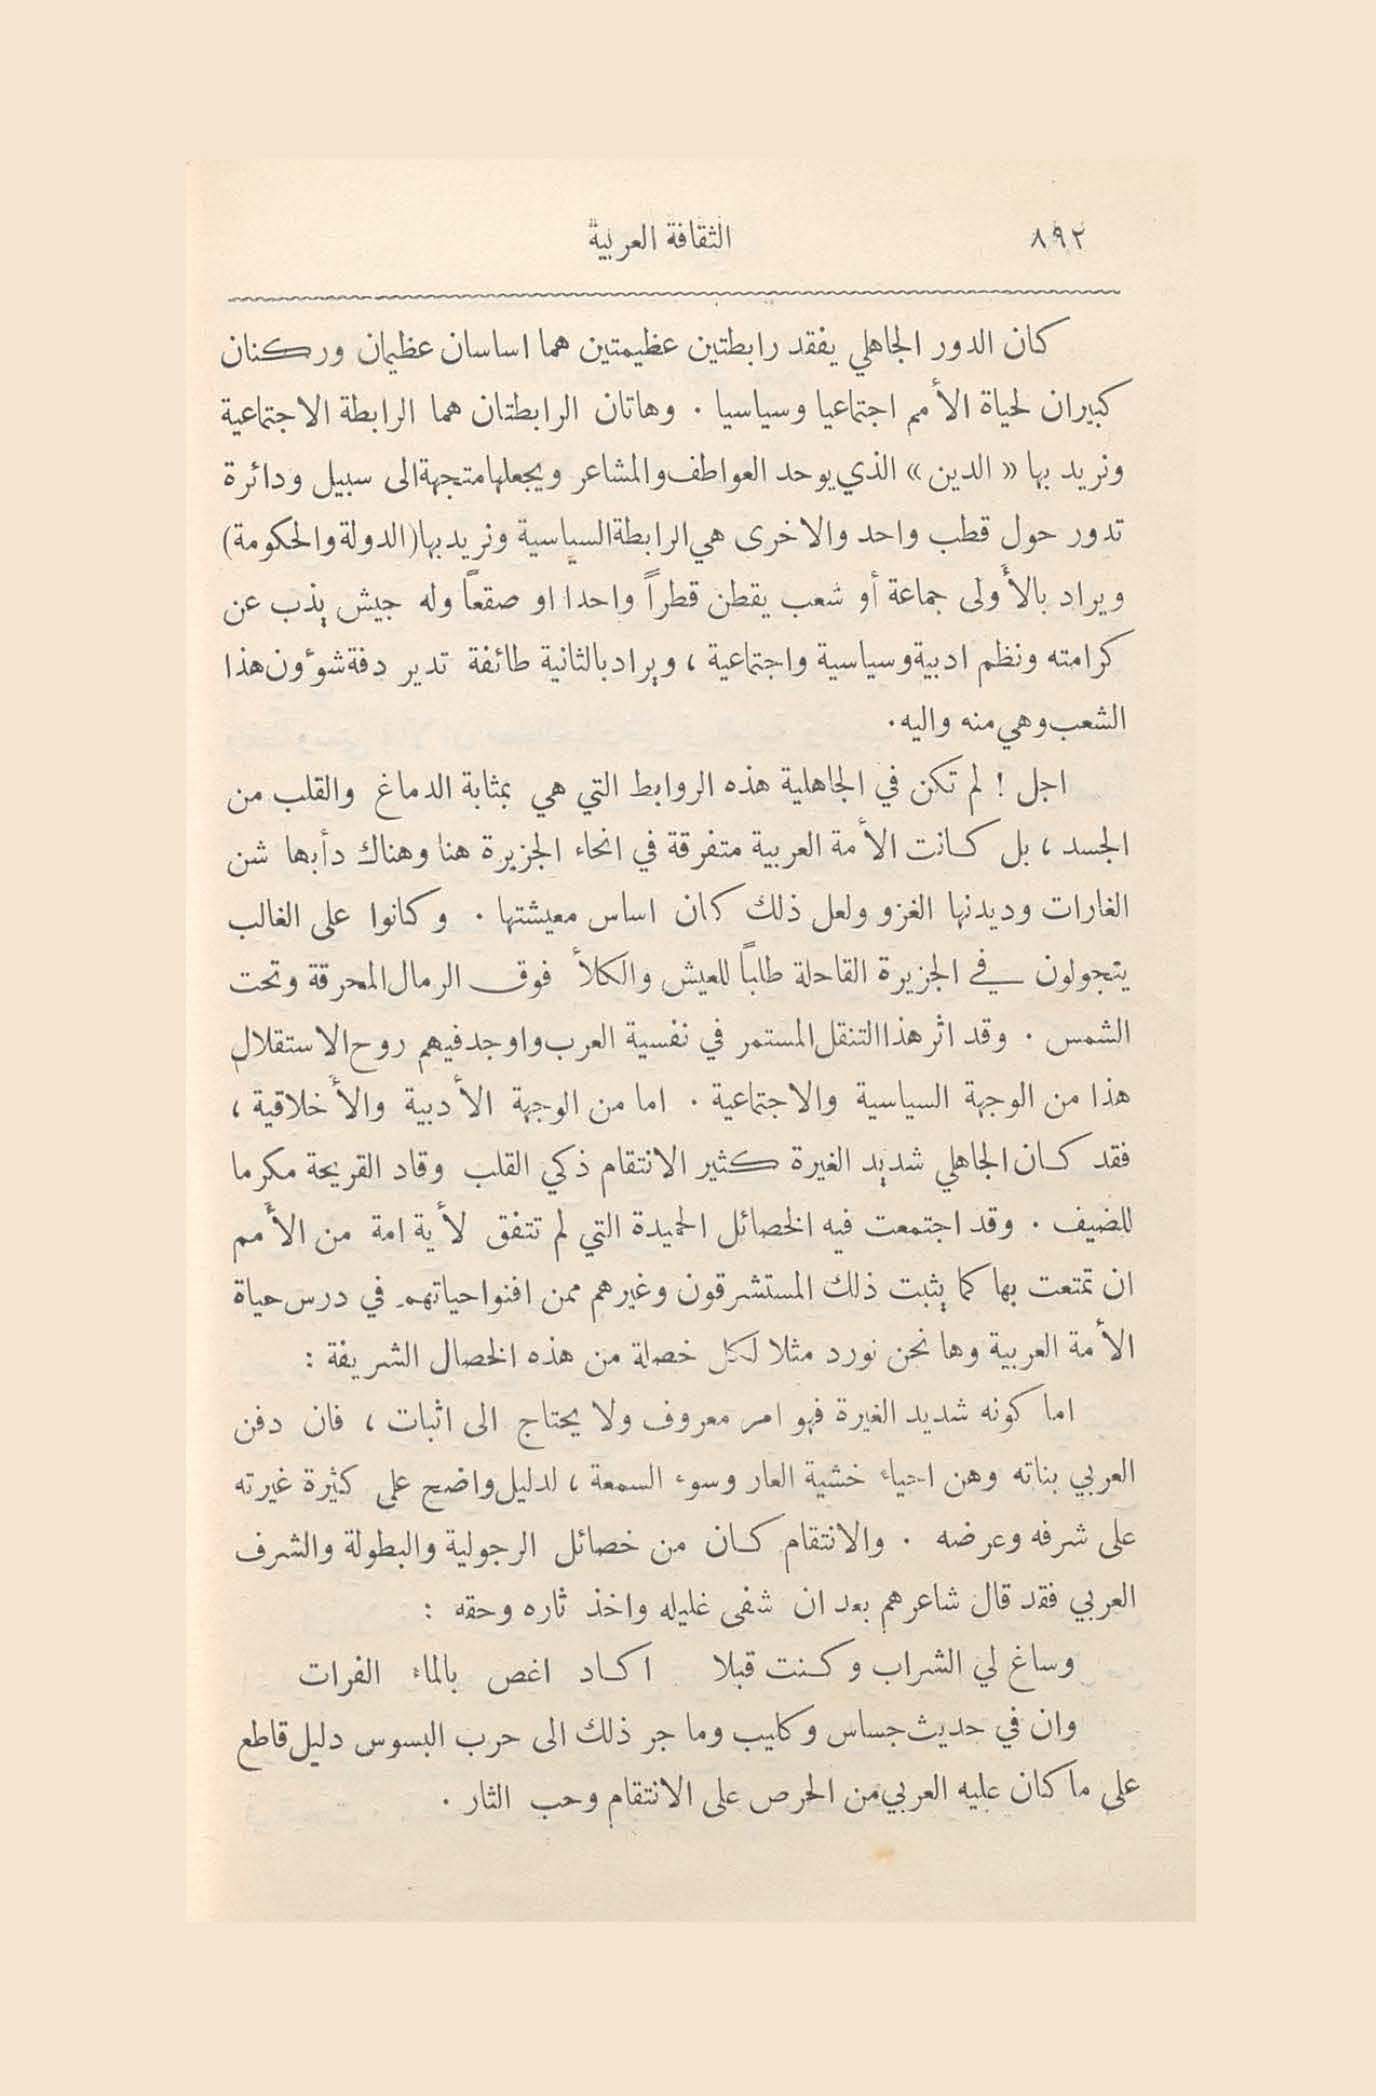 ٨٩٢
الثقافة العربية
كان الدور الجاهلي يفقد رابطتين عظيمتين هما اساسان عظيمان وركنان
كبيران لحياة الأمم اجتماعيا وسياسيا . وهاتان الرابطتان هما الرابطة الاجتماعية
ونريد بها « الدين » الذي يوحد العواطف والمشاعر ويجعلها متجهة الى سبيل ودائرة
تدور حول قطب واحد والاخرى هي الرابطة السياسية ونريد بها (الدولة والحكومة)
ويراد بالأولى جماعة أو شعب يقطن قطراً واحدا او صقعاً وله جيش يذب عن
كرامته ونظم ادبية وسياسية واجتماعية ، ويراد بالثانية طائفة تدير دفة شوءون هذا
الشعب وهي منه واليه .
اجل ! لم تكن في الجاهلية هذه الروابط التي هي بمثابة الدماغ والقلب من
الجسد ، بل كانت الأمة العربية متفرقة في انحاء الجزيرة هنا وهناك دأبها شن
الغارات وديدنها الغزو ولعل ذلك كان اساس معيشتها . وكانوا على الغالب
يتجولون في الجزيرة القاحلة طلباً للعيش والكلأ فوق الرمال المحرقة وتحت
الشمس . وقد اثر هذا التنقل المستمر في نفسية العرب واوجد فيهم روح الاستقلال
هذا من الوجهة السياسية والاجتماعية . اما من الوجهة الأدبية والأخلاقية ،
فقد كان الجاهلي شديد الغيرة كثير الانتقام ذكي القلب وقاد القريحة مكرما
للضيف . وقد اجتمعت فيه الخصائل الحميدة التي لم تتفق لأية امة من الأمم
ان تمتعت بها كما يثبت ذلك المستشرقون وغيرهم ممن افنوا حياتهم في درس حياة
الأمة العربية وها نحن نورد مثلا لكل خصلة من هذه الخصال الشريفة :
اما كونه شديد الغيرة فهو امر معروف ولا يحتاج الى اثبات ، فان دفن
العربي بناته وهن احياء خشية العار وسوء السمعة ، لدليل واضح على كثيرة غيرته
على شرفه وعرضه . والانتقام كان من خصائل الرجولية والبطولة والشرف
العربي فقد قال شاعرهم بعد ان شفى غليله واخذ ثاره وحقه :
وساغ لي الشراب وكنت قبلا اكاد اغص بالماء الفرات
وان في حديث جساس وكليب وما جر ذلك الى حرب البسوس دليل قاطع
على ما كان عليه العربي من الحرص على الانتقام وحب الثار .